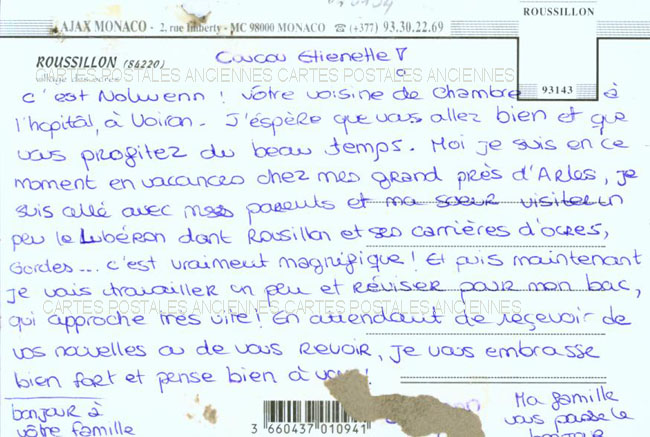 AJAX MONACO - 2, rue Imberty - MC 98000 MONACO ☎ (+377) 93.30.22.69
ROUSSILLON
93143
ROUSSILLON (84220)
Coucou Etienette
CARTES POSTALES ANCIENNES CARTES POSTALES ANCIENNES
C'est Nolwenn ! Votre voisine de Chambre à
l'hopital, à Voiron. J'éspère que vous allez bien et que
vous profitez du beau temps. Moi je suis en ce
moment en vacances chez mes grand près d'Arles, je
suis allé avec mes parents et ma soeur visiter un
peu le Lubéron dont Rousillon et ses carrières d'ocres,
Gordes... c'est vraiment magnifique ! Et puis maintenant
je vais travailler un peu et réviser pour mon bac,
CARTES POSTALES ANCIENNES CARTES POSTALES ANCIENNES
qui approche très vite ! En attendant de reçevoir de
vos nouvelles ou de vous revoir, je vous embrasse
bien fort et pense bien à vous !
bonjour à
vôtre famille
3 660437 010941
Ma famille
vous passe le
bonjour